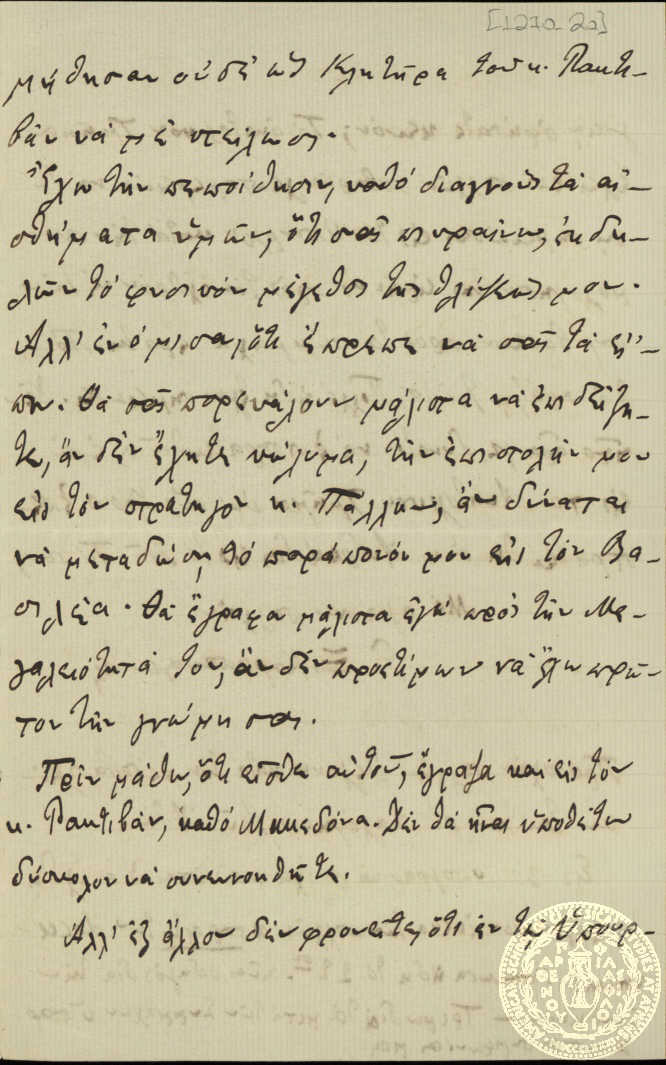 [1270-20]
μήθησαν οὐδὲ ὡς Κλητῆρα τοῦ κ. Ρακτι-
βᾶν νὰ μὲ στείλωσι.
Ἔχω τὴν πεποίθησιν, καθὸ διαγνοὺς τὰ αἰ-
σθήματα ὑμῶν, ὅτι σᾶς πικραίνω, ἐκδη-
λῶν τὸ φυσικὸν μέγεθος τῆς θλίψεώς μου.
Ἀλλ' ἐνόμισα, ὅτι ἔπρεπε νὰ σᾶς τὰ εἴ-
πω. Θὰ σᾶς παρεκάλουν μάλιστα νὰ ἐπιδείξη-
τε, ἂν δὲν ἔχητε κώλυμα, τὴν ἐπιστολήν μου
εἰς τὸν στρατηγὸν κ. Πάλλην, ἂν δύναται
νὰ μεταδώσῃ τὸ παράπονόν μου εἰς τὸν Βα-
σιλέα. Θὰ ἔγραφα μάλιστα ἐγὼ πρὸς τὴν Με-
γαλειότητά του, ἂν δὲν προετίμων νὰ ἔχω πρῶ-
τον τὴν γνώμη σας.
Πρὶν μάθω, ὅτι εἶσθε αὐτοῦ, ἔγραψα καὶ εἰς τὸν
κ. Ρακτιβὰν, καθὸ Μακεδόνα. Δὲν θὰ ἦναι ὑποθέτω
δύσκολον νὰ συνεννοηθῆτε.
Ἀλλ' ἐξ ἄλλου δὲν φρονεῖτε, ὅτι ἐν τῷ Ὑπουρ-